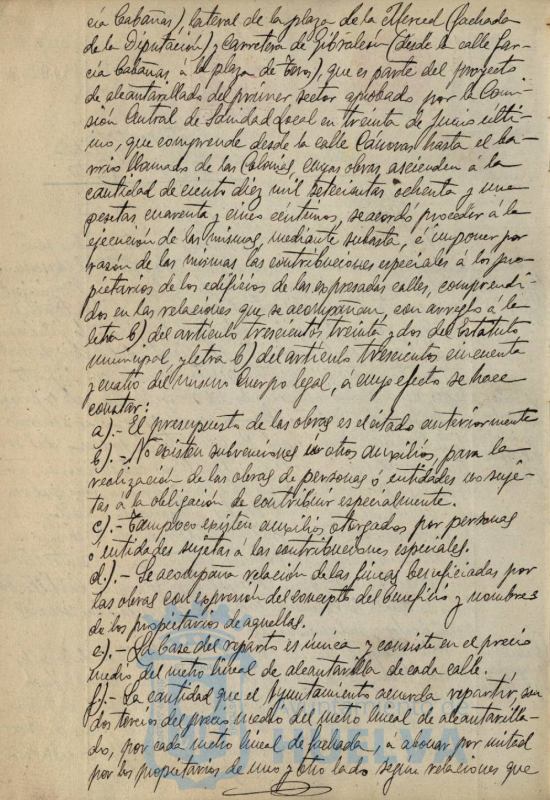 cía Cabañas), lateral de la plaza de la Merced (fachada
de la Diputación) y Carretera de Gibraleón (desde la calle Gar-
cía Cabañas á la plaza de Toros), que es parte del proyecto
de alcantarillado del primer sector aprobado por la Comi-
sión Central de Sanidad Local en treinta de Junio últi-
mo, que comprende desde la calle Cánovas hasta el ba-
rrio llamado de las Colonias, cuyas obras ascienden á la
cantidad de ciento diez mil setecientas ochenta y una
pesetas cuarenta y cinco céntimos, se acordó proceder á la
ejecución de las mismas, mediante subasta, é imponer por
razón de las mismas las contribuciones especiales á los pro-
pietarios de los edificios de las expresadas calles, comprendi-
dos en las relaciones que se acompañan, con arreglo á la
letra b) del artículo trescientos treinta y dos del Estatuto
municipal y letra b) del artículo trescientos cincuenta
y cuatro del mismo Cuerpo legal, á cuyo efecto se hace
constar:
a).- El presupuesto de las obras es el citado anteriormente
b).- No existen subvenciones ni otros auxilios, para la
realización de las obras de personas ó entidades no suje-
tas á la obligación de contribuir especialmente.
c).- Tampoco existen auxilios otorgados por personas
ó entidades sujetas á las contribuciones especiales.
d.).- Se acompaña relación de las fincas beneficiadas por
las obras con expresión del concepto del beneficio y nombres
de los propietarios de aquellas.
e).- La base del reparto es única y consiste en el precio
medio del metro lineal de alcantarilla de cada calle.
f).- La cantidad que el Ayuntamiento acuerda repartir, son
dos tercios del precio medio del metro lineal de alcantarilla-
do, por cada metro lineal de fachada, a abonar por mitad
por los propietarios de uno y otro lado según relaciones que
HUELVA